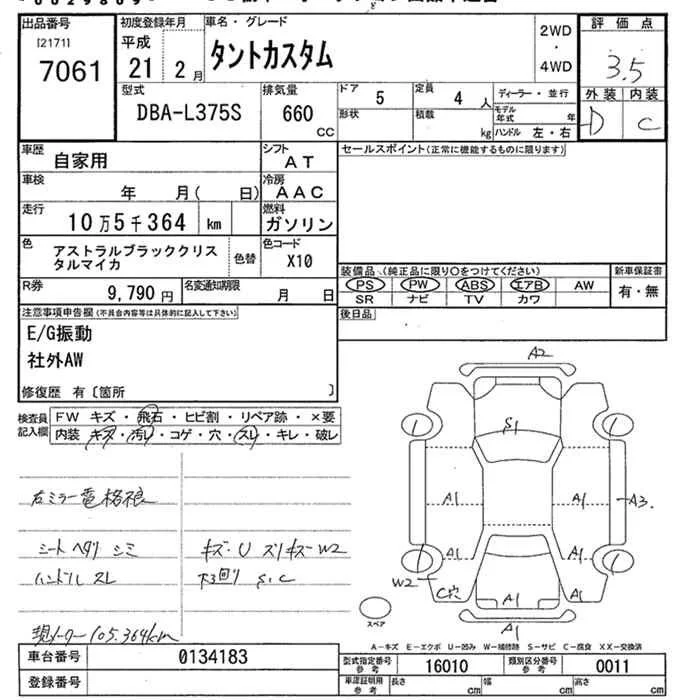 出品番号
[2171]
7061
初度登録年月
平成
21 2月
車名・グレード
タントカスタム
2WD
・
4WD
評価点
3.5
外装 内装
D C
型式
DBA-L375S
排気量
660
CC
ドア 5
形状
定員 4 人
積載 kg
ディーラー・並行
モデル年式 年
ハンドル 左・右
車歴
自家用
シフト
AT
セールスポイント(正常に機能するものに限ります)
車検
年 月( 日)
冷房
AAC
走行
10万5千364 km
燃料
ガソリン
色
アストラルブラッククリス
タルマイカ
色替
色コード
X10
装備品(純正品に限り○をつけてください)
PS PW ABS エアB AW
SR ナビ TV カワ
新車保証書
有・無
R券
9,790円
名変通知期限
月 日
後日品
注意事項申告欄(不具合内容等は具体的に記入して下さい)
E/G振動
社外AW
修復歴 有〔箇所 〕
検査員
記入欄
FW キズ・飛石・ヒビ割・リペア跡・×要
内装 キズ・汚レ・コゲ・穴・スレ・キレ・破レ
右ミラー電格
シートヘタリ シミ
ハンドル スレ
現メーター105.364km
キズ・U スリキズ W2
下回り S,C
A2
S1
1 1
A1 A1
A3
A1 A1
1 1
W2
C穴
A1 A1
A1
スペア
A−キズ E−エクボ U−凹み W−補修跡 S−サビ C−腐食 XX−交換済
車台番号
0134183
登録番号
型式指定番号
参考
16010
類別区分番号
参考
0011
車庫証明用
参考
長さ cm
幅 cm
高さ cm